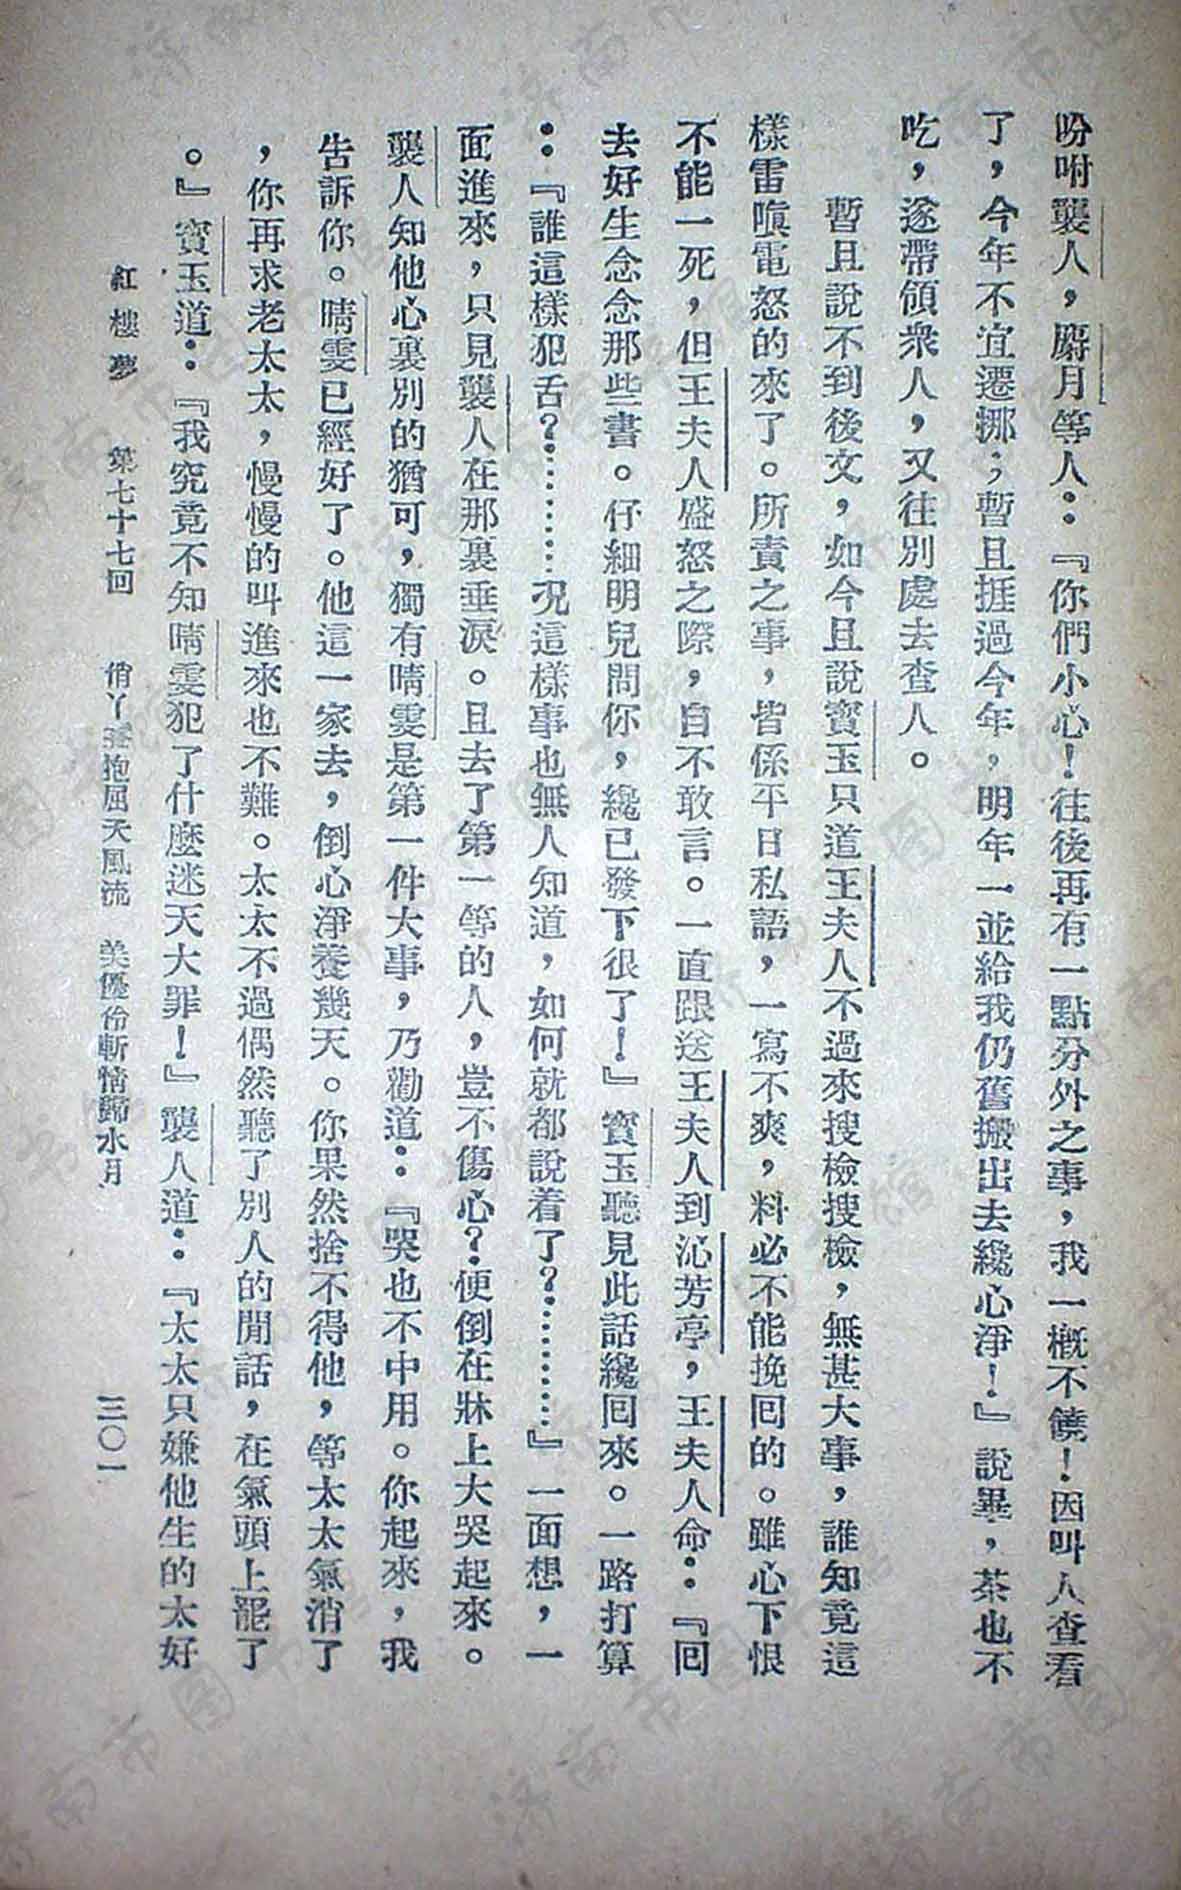 吩咐襲人，麝月等人：『你們小心！往後再有一點分外之事，我一概不饒！因叫人查看
了，今年不宜遷挪；暫且挨過今年，明年一並給我仍舊搬出去纔心淨！』說畢，茶也不
吃，遂帶領衆人，又往別處去查人。
暫且說不到後文，如今且說寶玉只道王夫人不過來搜檢搜檢，無甚大事，誰知竟這
樣雷嗔電怒的來了。所責之事，皆係平日私語，一寫不爽，料必不能挽回的。雖心下恨
不能一死，但王夫人盛怒之際，自不敢言。一直跟送王夫人到沁芳亭，王夫人命：『回
去好生念念那些書。仔細明兒問你，纔已發下很了！』寶玉聽見此話纔回來。一路打算
：『誰這樣犯舌？………況這樣事也無人知道，如何就都說着了？………』一面想，一
面進來，只見襲人在那裏垂淚。且去了第一等的人，豈不傷心？便倒在牀上大哭起來。
襲人知他心裏別的猶可，獨有晴雯是第一件大事，乃勸道：『哭也不中用。你起來，我
告訴你。晴雯已經好了。他這一家去，倒心淨養幾天。你果然捨不得他，等太太氣消了
，你再求老太太，慢慢的叫進來也不難。太太不過偶然聽了別人的閒話，在氣頭上罷了
。』寶玉道：『我究竟不知晴雯犯了什麼迷天大罪！』襲人道：『太太只嫌他生的太好
紅樓夢 第七十七回 俏丫鬟抱屈夭風流 美優伶斬情歸水月 三〇一
济南市图书馆